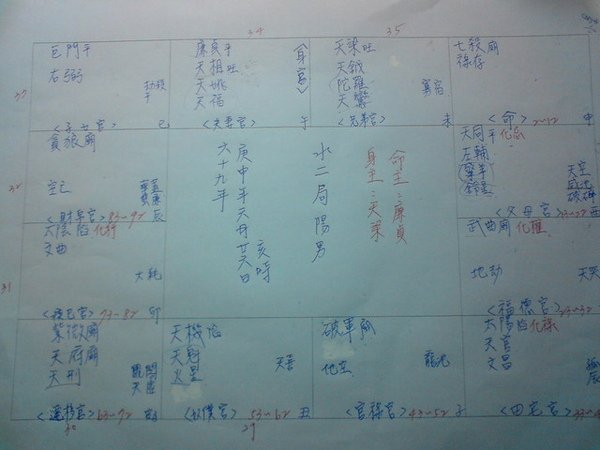 34
35
33
巨門平
右弼
<子女宮>
巳
廉貞平
天相旺
天姚
天福
(身宮)
<夫妻宮>
午
天梁旺
天鉞
陀羅
寡宿
<兄弟宮>
未
七殺廟
祿存
<命>
2~12
申
32
貪狼廟
<財帛宮>83~92
辰
命主:廉貞
身主:天梁
水二局陽男
庚申年六月廿六日亥時
六十九年
天同平化忌
左輔
擎羊
鈴星
天空
咸池
破碎
<父母宮>
酉
31
太陰陷化科
文曲
<疾厄宮>73~82
卯
武曲廟化權
地劫
<福德宮>23~32
紫微廟
天府廟
天刑
<遷移宮>63~72
30
天機陷
天魁
火星
<奴僕宮>53~62
丑
29
破軍廟
龍池
<官祿宮>43~52
子
太陽陷化祿
天官
文昌
<田宅宮>